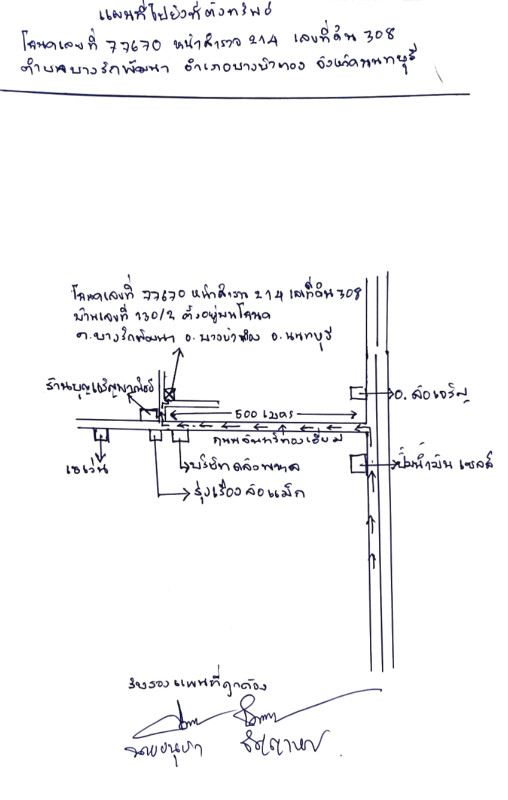 แผนที่ไปยังที่ตั้งทรัพย์
โฉนดเลขที่ 77670 หน้าสำรวจ 214 เลขที่ดิน 308
ตำบลบางรักพัฒนา อำเภอบางบัวทอง จังหวัดนนทบุรี
โฉนดเลขที่ 77670 หน้าสำรวจ 214 เลขที่ดิน 308
บ้านเลขที่ 130/2 ตั้งอยู่บนโฉนด
ต.บางรักพัฒนา อ.บางบัวทอง จ.นนทบุรี
ร้านบุญเจริญพาณิชย์
500 เมตร
อ.ล้อเจริญ
ถนนจันทร์ทองเอี่ยม
เซเว่น
บริษัท
ปั๊มน้ำมัน เชลล์
รุ่งเรืองล้อแม็ก
รับรองแผนที่ถูกต้อง